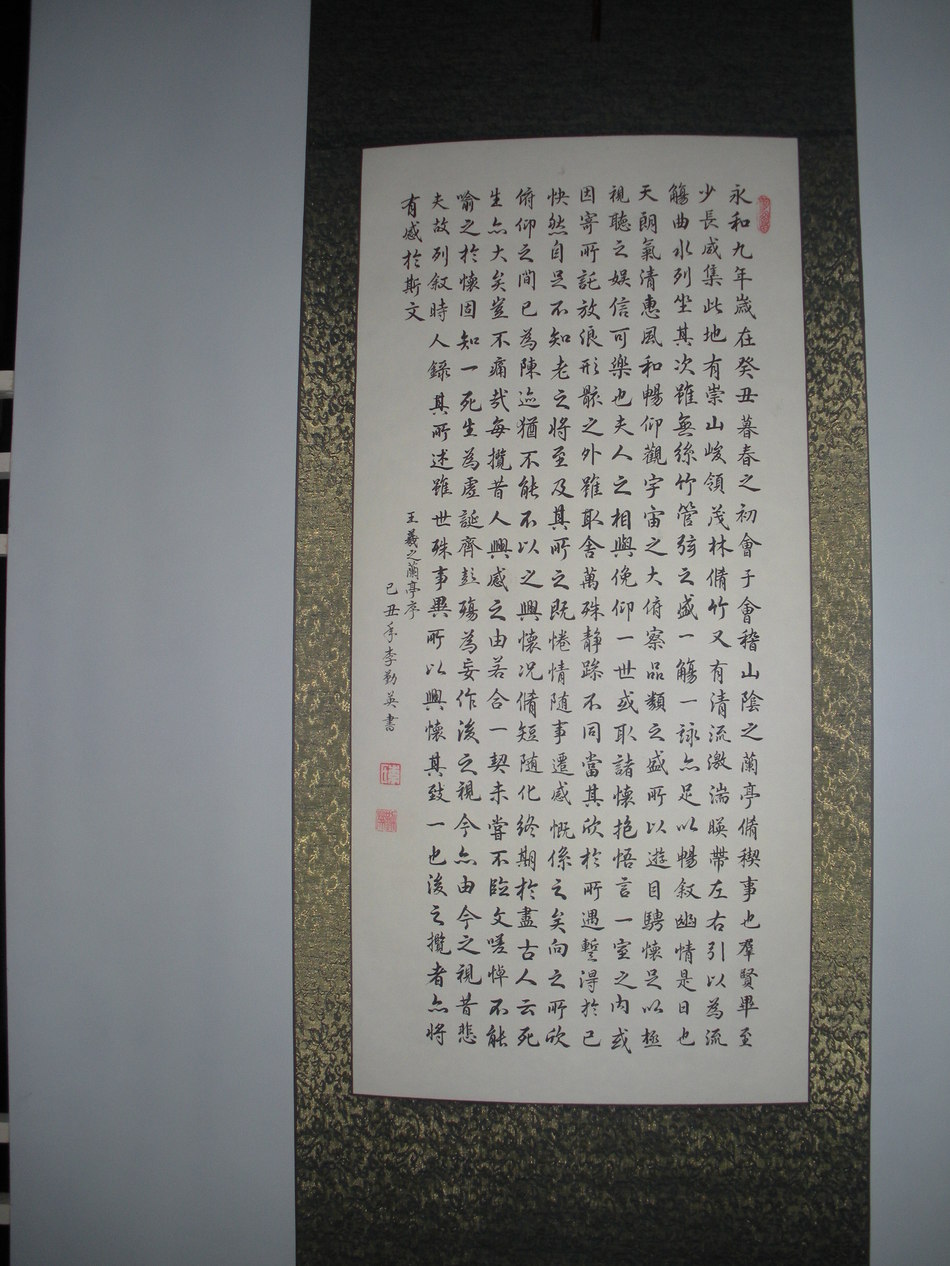 永和九年歲在癸丑暮春之初會于會稽山陰之蘭亭脩稧事也羣賢畢至
少長咸集此地有崇山峻領茂林脩竹又有清流激湍暎帶左右引以為流
觴曲水列坐其次雖無絲竹管弦之盛一觴一詠亦足以暢叙幽情是日也
天朗氣清惠風和暢仰觀宇宙之大俯察品類之盛所以遊目騁懷足以極
視聽之娛信可樂也夫人之相與俛仰一世或取諸懷抱悟言一室之内或
因寄所託放浪形骸之外雖取舍萬殊静躁不同當其欣於所遇蹔得於己
怏然自足不知老之將至及其所之既惓情隨事遷感慨係之矣向之所欣
俯仰之間已為陳迹猶不能不以之興懷况脩短隨化終期於盡古人云死
生亦大矣豈不痛哉每攬昔人興感之由若合一契未嘗不臨文嗟悼不能
喻之於懷固知一死生為虛誕齊彭殤為妄作後之視今亦由今之視昔悲
夫故列叙時人錄其所述雖世殊事異所以興懷其致一也後之攬者亦將
有感於斯文
王羲之蘭亭序
己丑年李勤英書